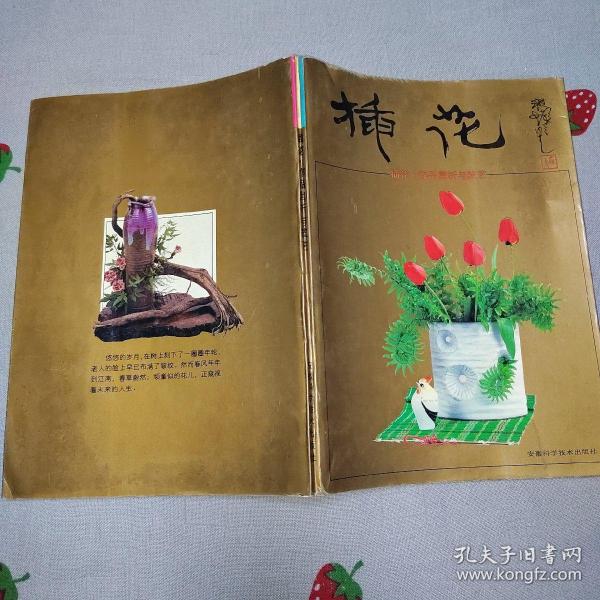 插花
悠悠的岁月,在树上刻下了一圈圈年轮,
老人的脸上早已布满了皱纹。然而春风年年
到江南,春草蔚然,顽童似的花儿,正窥视
着未来的人生。
安徽科学技术出版社
孔夫子旧书网
www.kongfz.com